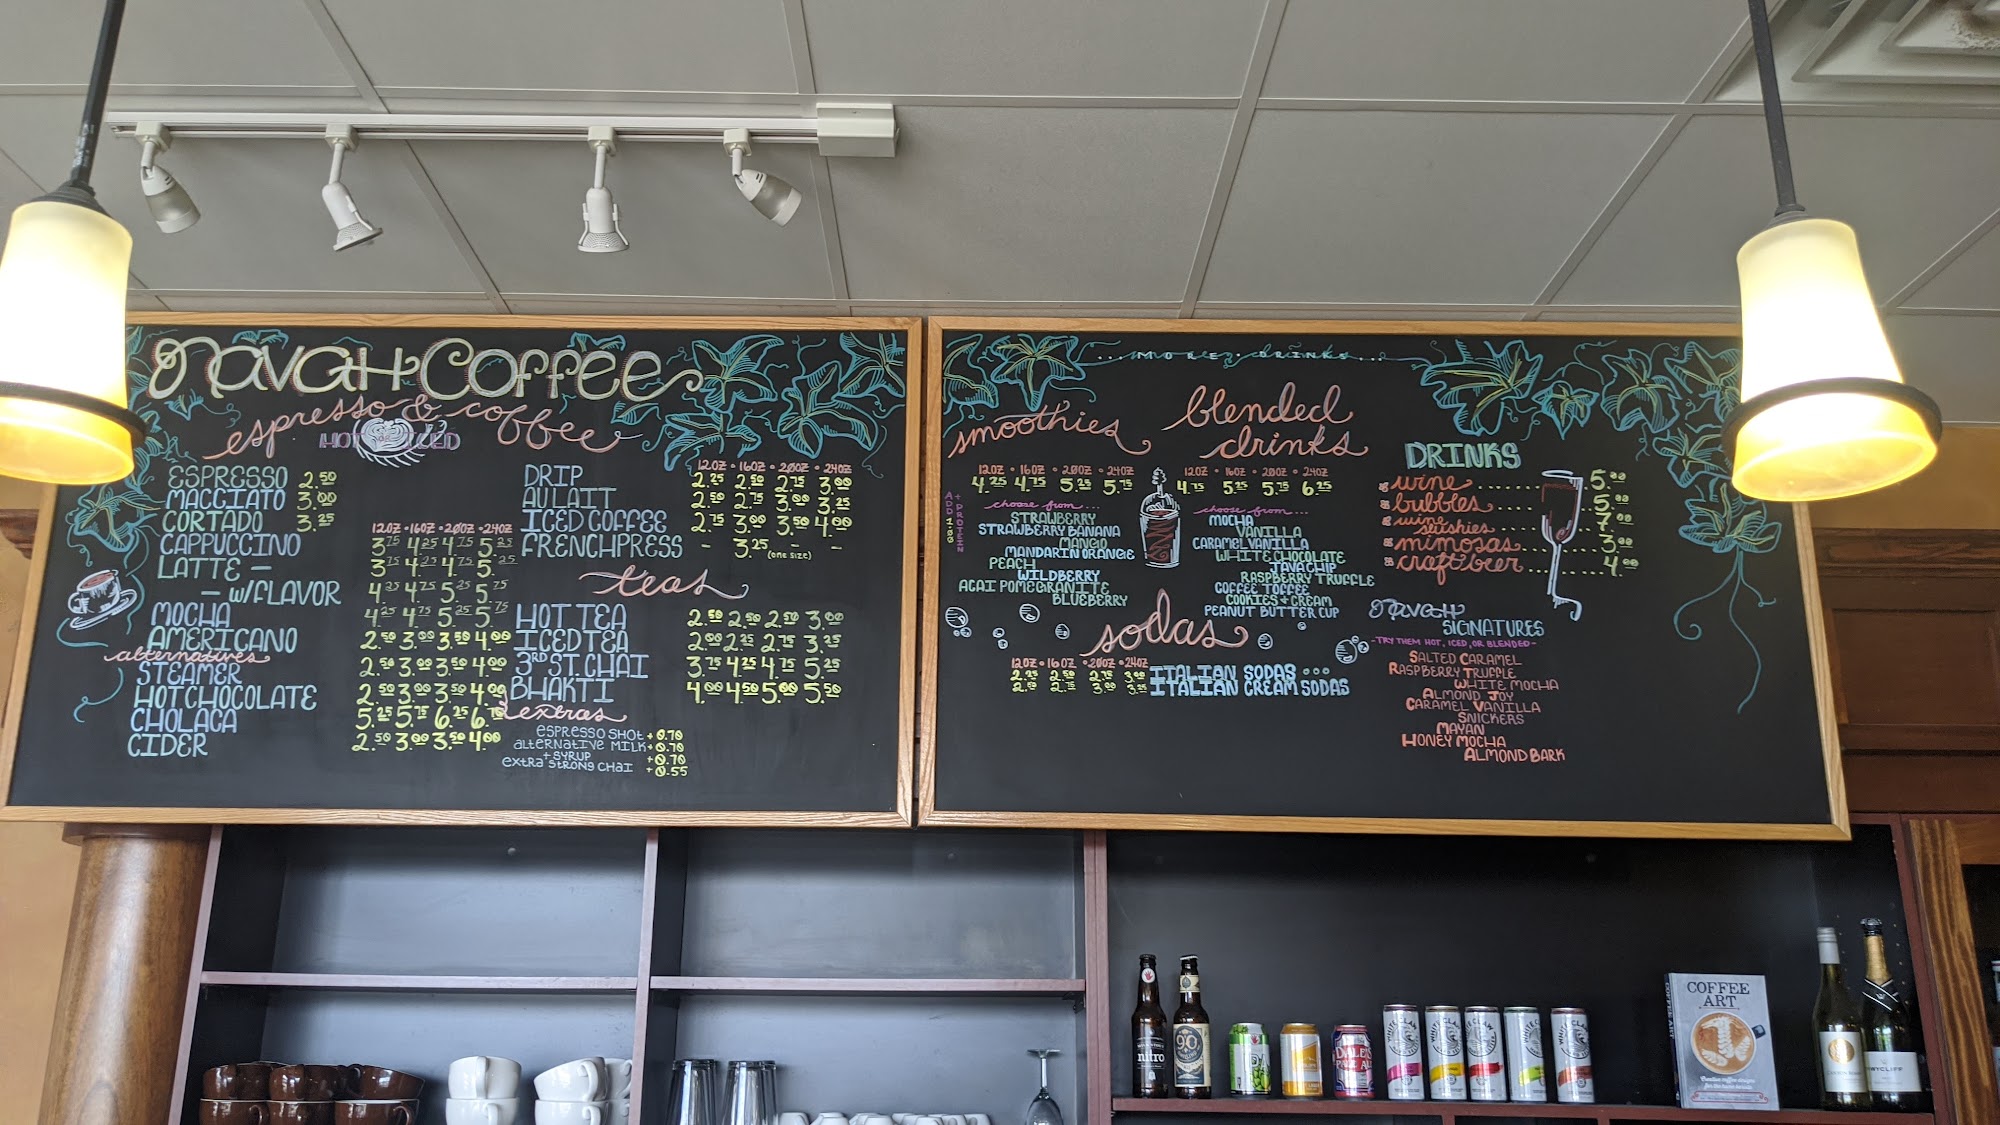 Navah Coffee
espresso & coffee
HOT or ICED
ESPRESSO 2.50
MACCIATO 3.00
CORTADO 3.25
12OZ • 16OZ • 20OZ • 24OZ
CAPPUCCINO 3.75 4.25 4.75 5.25
LATTE — 3.75 4.25 4.75 5.25
— W/FLAVOR 4.25 4.75 5.25 5.75
MOCHA 4.25 4.75 5.25 5.75
AMERICANO 2.50 3.00 3.50 4.00
alternatives
STEAMER 2.50 3.00 3.50 4.00
HOT CHOCOLATE 2.50 3.00 3.50 4.00
CHOLACA 5.25 5.75 6.25 6.75
CIDER 2.50 3.00 3.50 4.00
12OZ • 16OZ • 20OZ • 24OZ
DRIP 2.25 2.50 2.75 3.00
AU LAIT 2.50 2.75 3.00 3.25
ICED COFFEE 2.75 3.00 3.50 4.00
FRENCHPRESS - 3.25 - -
(ONE SIZE)
teas
HOT TEA 2.50 2.50 2.50 3.00
ICED TEA 2.00 2.25 2.75 3.25
3RD ST. CHAI 3.75 4.25 4.75 5.25
BHAKTI 4.00 4.50 5.00 5.50
extras
ESPRESSO SHOT +0.70
ALTERNATIVE MILK +0.70
+ SYRUP +0.70
EXTRA STRONG CHAI +0.55
...MORE • DRINKS...
smoothies
12OZ • 16OZ • 20OZ • 24OZ
4.25 4.75 5.25 5.75
+ PROTEIN
ADD 1.00
choose from...
STRAWBERRY
STRAWBERRY BANANA
MANGO
MANDARIN ORANGE
PEACH
WILDBERRY
ACAI POMEGRANITE
BLUEBERRY
blended
drinks
12OZ • 16OZ • 20OZ • 24OZ
4.75 5.25 5.75 6.25
choose from...
MOCHA
VANILLA
CARAMEL VANILLA
WHITE CHOCOLATE
JAVA CHIP
RASPBERRY TRUFFLE
COFFEE TOFFEE
COOKIES & CREAM
PEANUT BUTTER CUP
sodas
12OZ • 16OZ • 20OZ • 24OZ
2.25 2.50 2.75 3.00 ITALIAN SODAS ...
2.50 2.75 3.00 3.25 ITALIAN CREAM SODAS
DRINKS
wine ........ 5.00
bubbles ...... 5.00
wine
slushies ..... 7.00
mimosas ..... 3.00
craft beer ..... 4.00
Navah
SIGNATURES
-TRY THEM HOT, ICED, OR BLENDED-
SALTED CARAMEL
RASPBERRY TRUFFLE
WHITE MOCHA
ALMOND JOY
CARAMEL VANILLA
SNICKERS
MAYAN
HONEY MOCHA
ALMOND BARK
nitro
90
DALE'S
PALE ALE
WHITE CLAW
WHITE CLAW
WHITE CLAW
WHITE CLAW
WHITE CLAW
COFFEE ART
COFFEE
ART